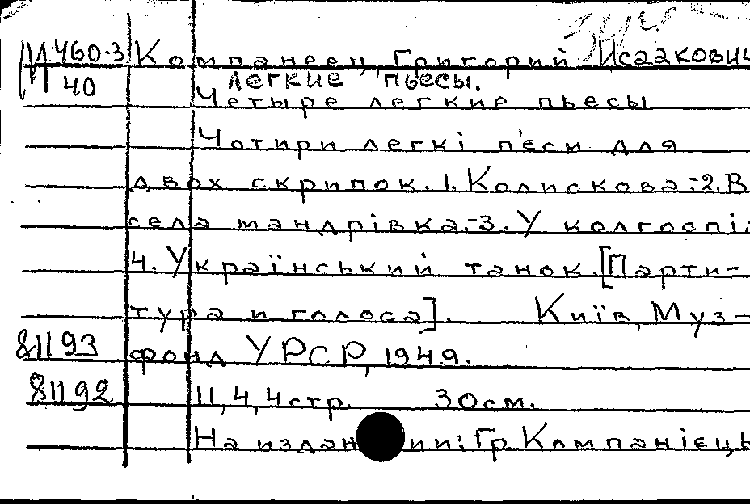 М 460-3 Компанеец, Григорий Исаакович
40 Легкие пьесы.
Четыре легкие пьесы
Чотири легкі п'єси для
двох скрипок. 1. Колискова.-2. В
села мандрівка.-3. У колгоспі.
4. Український танок. [Парти-
тура и голоса]. Київ, Муз-
81193 фонд УРСР, 1949.
81192 11, 4, 4 стр. 30 см.
На издан ии: Гр. Компанієць